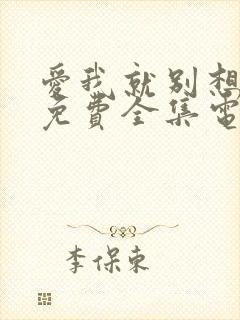 愛我就别想
免費全集電
李保東